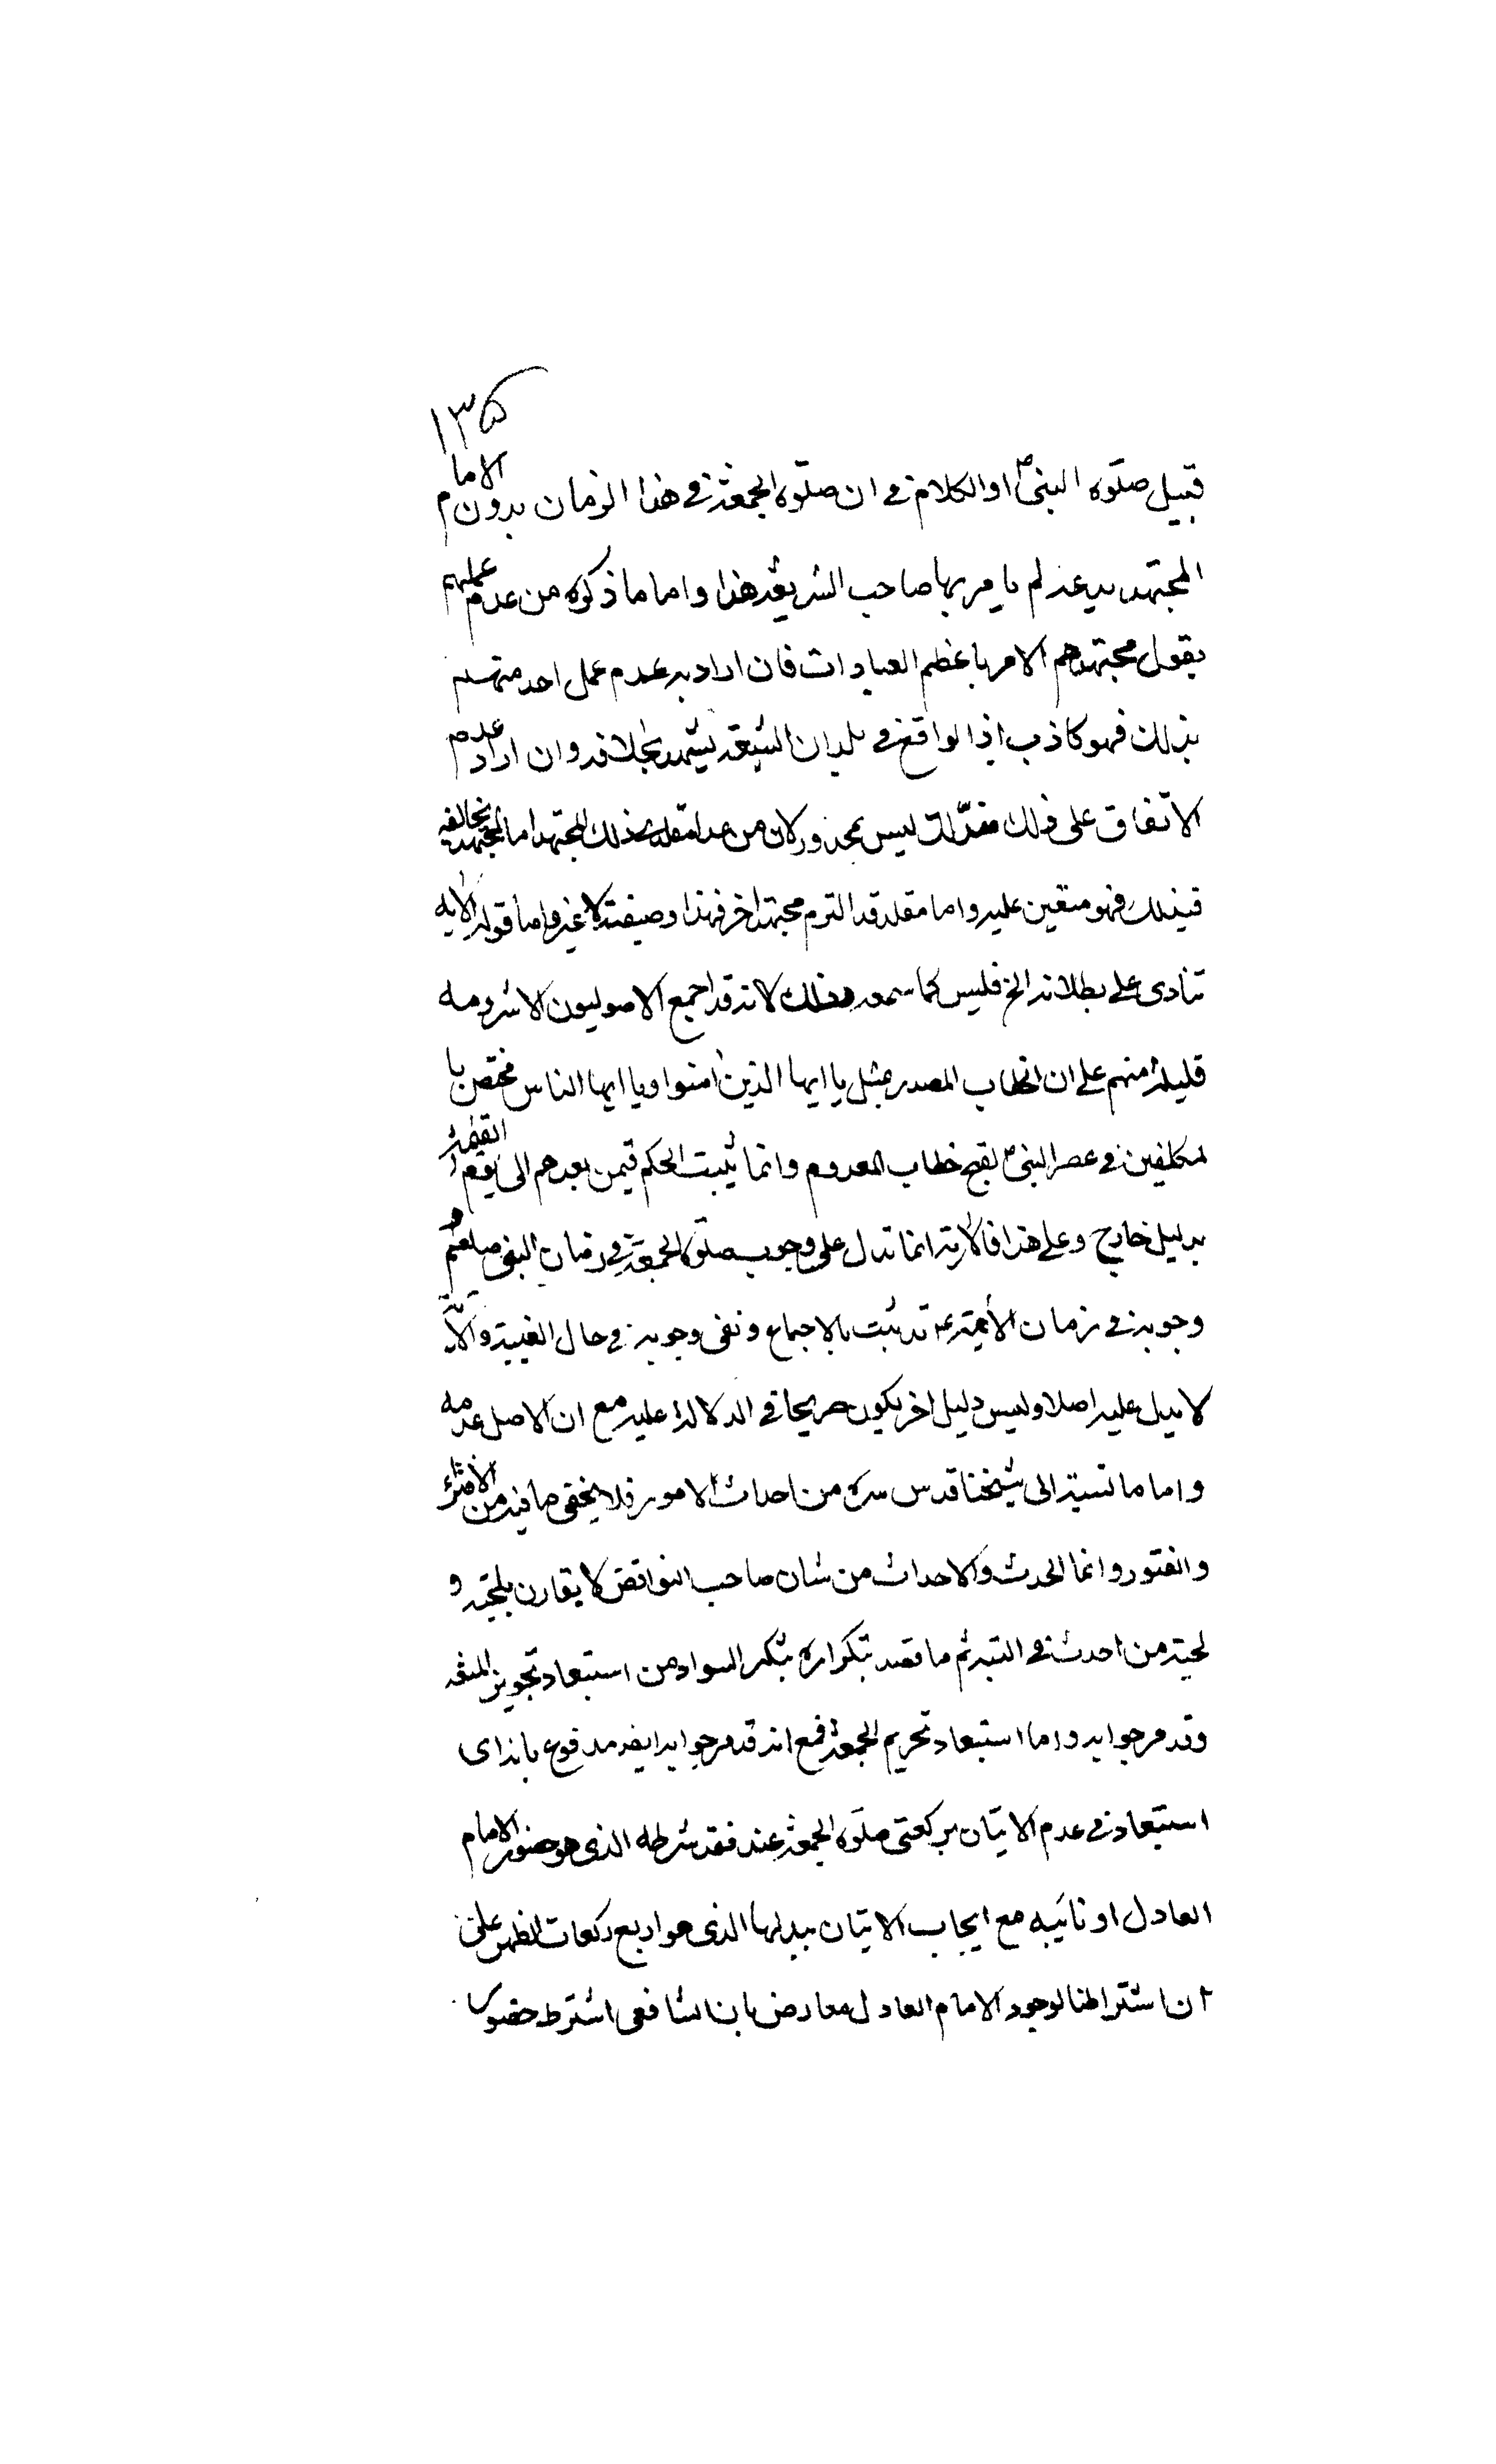 ١٣٥
قبيل صلوة النبىؐ او الكلام فى ان صلوة الجمعة فى هذا الزمان بدون الامام
المجتهد بدعة لم يامر بها صاحب الشريعة هذا واما ما ذكره من عدم عملهم
بقول مجتهدهم الامر باعظم العبادات فان اراد به عدم عمل احد منهم
بذلك فهو كاذب اذ الواقع فى بلدان الشيعة يشهد بخلافه وان اراد عدم
الاتفاق على ذلك فذلك ليس بمحذور لان من عدا مقلد ذلك المجتهد اما مجتهد يخالفه
فيذلك فهو متعين عليه واما مقلد قد التزم مجتهدا اخر فهذا وضيفته لا غير واما قوله الاية
تنادى على بطلانه الخ فليس كما سمعه وذلك لانه قد اجمع الاصوليون الا شرذمه
قليلة منهم على ان الخطاب المصدر بمثل يا ايها الذين امنوا ويا ايها الناس مختص با
لمكلفين فى عصر النبىؐ لقبح خطاب المعدوم وانما يثبت الحكم فيمن بعدهم الى يوم القيمة
بدليل خارج وعلى هذا فالاية انما تدل على وجوب صلوة الجمعة فى زمان النبى صلعم و
وجوبه فى زمان الأيمة ع قد ثبت بالاجماع ونفى وجوبه فى حال الغيبة والاية
لا يدل عليه اصلا وليس دليل اخر يكون صريحا فى الدلالة عليه مع ان الاصل عدمه
واما ما نسبته الى شيخنا قدس سره من احداث الامور فلا يخفى ما فيه من الافتراء
والفتور وانما الحدث والاحداث من شان صاحب النواقض لا يقارن بلحيته و
لحية من احدث فى التبه ثم ما قصد بتكراره بتكير السواد من استبعاد تجويز المتعه
وقد مر جوابه واما استبعاد تحريم الجمعة فمع انه قد مر جوابه ايضا مدفوع بانه اى
استبعاد فى عدم الاتيان بركعتى صلوة الجمعة عند فقد شرطه الذى هو حضور الامام
العادل او نائبه مع ايجاب الاتيان ببدلها الذى هو اربع ركعات الظهر على
ان اشتراطنا لوجود الامام العادل معارض بان الشافعى اشترط حضور